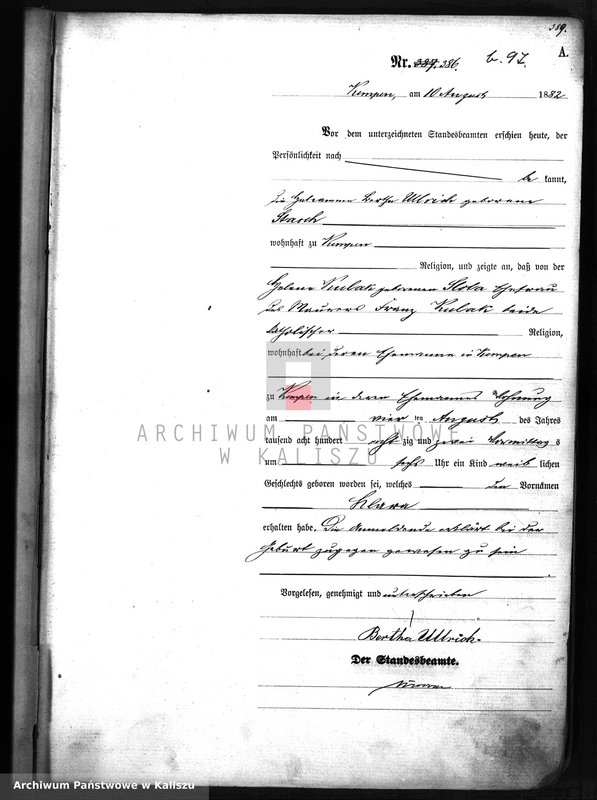 389.
A.
Nr. 387. 386. b. 97.
Kempen, am 10 August 1882
Vor dem unterzeichneten Standesbeamten erschien heute, der
Persönlichkeit nach
be kannt,
die Hebamme Bertha Ullrich geborene
Starch
wohnhaft zu Kempen
Religion, und zeigte an, daß von der
Helena Kulak geborenen Slota Ehefrau
des Maurers Franz Kulak beide
katholischer Religion,
wohnhaft bei deren Ehemanne in Kempen
zu Kempen in deren Ehemannes Wohnung
am vier ten August des Jahres
tausend acht hundert acht zig und zwei Vormittag s
um sechs Uhr ein Kind weib lichen
Geschlechts geboren worden sei, welches den Vornamen
Klara
erhalten habe. Die Anmeldende erklärt bei der
Geburt zugegen gewesen zu sein
Vorgelesen, genehmigt und unterschrieben
Bertha Ullrich.
Der Standesbeamte.
ARCHIWUM PAŃSTWOWE
W KALISZU
Archiwum Państwowe w Kaliszu